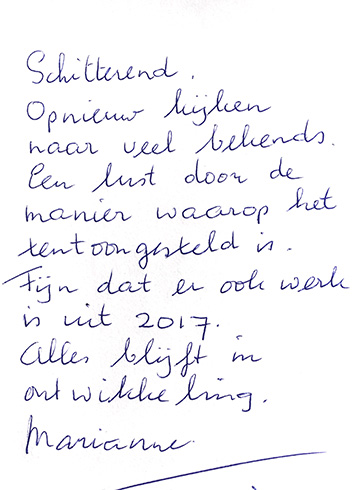 Schitterend.
Opnieuw kijken
naar veel bekends.
Een lust door de
manier waarop het
tentoongesteld is.
Fijn dat er ook werk
is uit 2017.
Alles blijft in
ontwikkeling.
Marianne